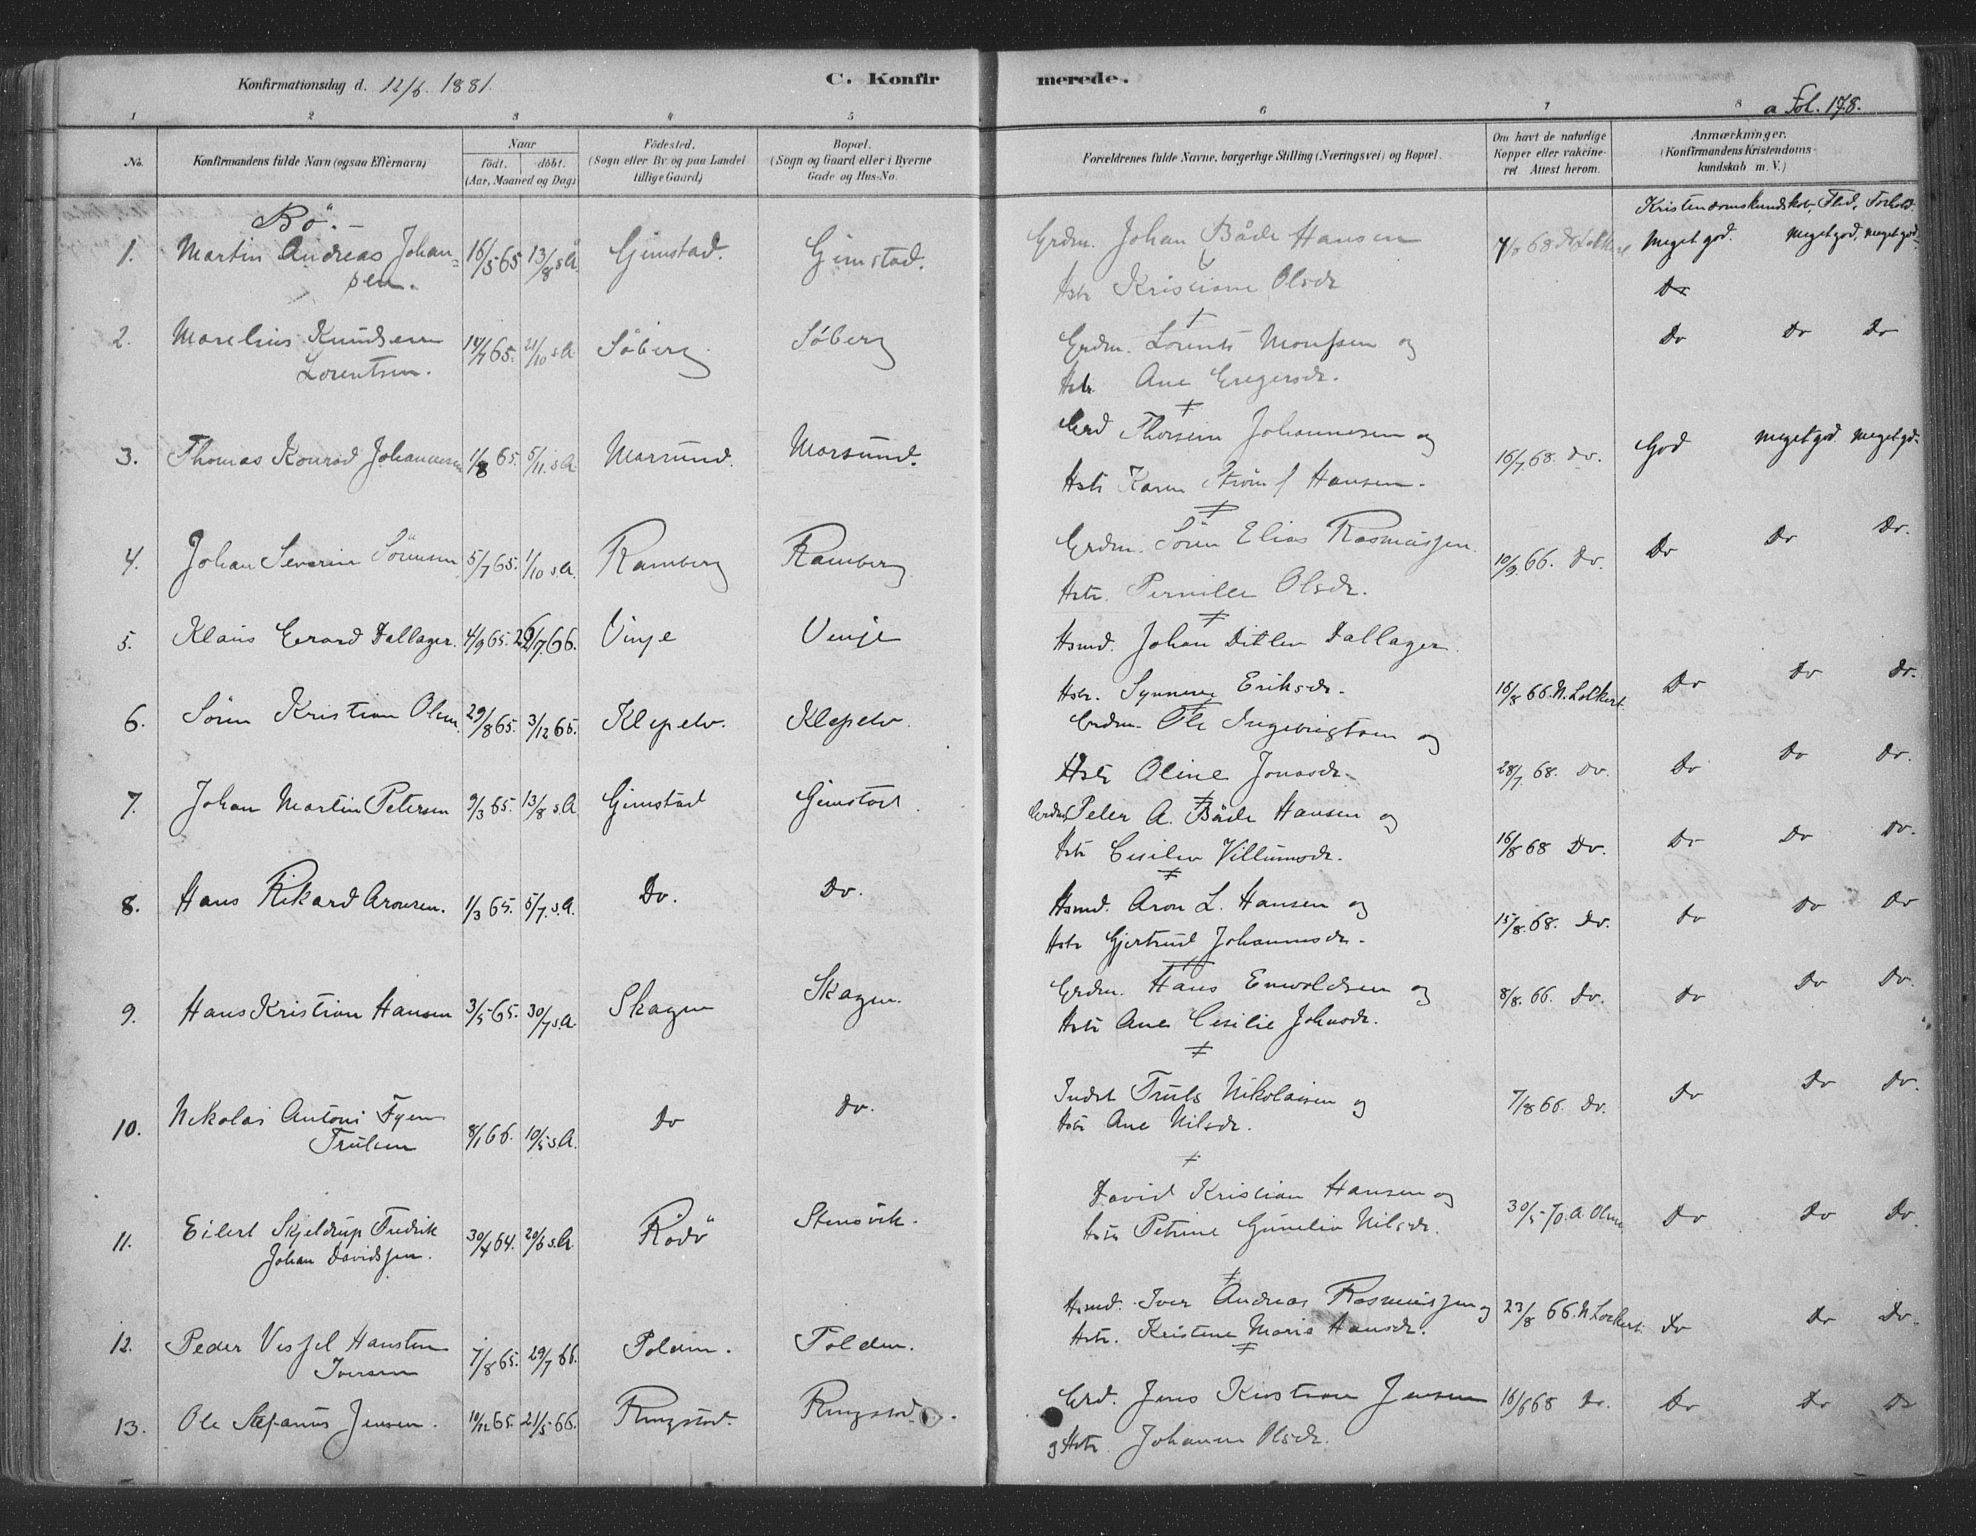 Konfirmationsdag d. 12/6. 1881.
C. Konfirmerede.
a Fol. 178.
1 2 3 4 5 6 7 8
No. Konfirmandens fulde Navn (ogsaa Efternavn)
Naar født. døbt. (Aar, Maaned og Dag)
Fødested. (Sogn eller By og paa Landet tillige Gaard)
Bopæl. (Sogn og Gaard eller i Byerne Gade og Hus-No.
Forældrenes fulde Navne, borgerlige Stilling (Næringsvei) og Bopæl.
Om havt de naturlige Kopper eller vakcineret. Attest herom.
Anmærkninger. (Konfirmandens Kristendomskundskab m. V.)
Kristendomskundskab, Flid, Forhold.
Bö.-
1. Martin Andreas Johan= 16/5 65 13/8 s.A. Gimstad. Gimstad. Grdm. Johan Både Hansen 68 Meget god. Meget god, meget god.
sen. Hstr Kristiane Olsdr Do
2. Marelius Knudsen 14/7 65. 21/10 s.A. Söberg. Söberg Grdm. Lorents Monssen og Do Do Do
Lorentsen. Hstr Ane Eregersdr.
3. Thomas Konrad Johannesen 1/8 65. 5/11. s.A. Morsund. Morsund. Grd Thorsten Johannesen og 16/7 68. Do. God meget god. meget gd.
Hstr Karen f Hansen.
4. Johan Severin Sörensen 5/7 65. 1/10 s.A. Ramberg Ramberg. Grdm. Sören Elias Rasmussen. 10/9. 66. Do. Do Do Do.
Hstr. Pernille Olsdr.
5. Klaus Gerard Dallager. 4/9 65. 26/7. 66. Vinje Vinje Hsmd. Johan Ditlev Dallager.
Hstr. Synneve Eriksdr. 16/8 66. N. Lockert Do Do Do.
6. Sören Kristian Olsen 29/8 65. 3/12 65. Klepelv. Klepelv. Grdm. Ole Ingebrigtsen og
Hstr Oline Jonasdr. 28/7. 68. Do. Do Do Do.
7. Johan Martin Petersen 9/3 65. 13/8 s.A. Gimstad Gimstad. Grdm. Peter A. Både Hansen og
Hstr Cecilie Villumsdr. 16/8 68 Do. Do Do Do.
8. Hans Rikard Aronsen. 1/3 65. 5/7. s.A. Do. Do. Hsmd. Aron L. Hansen og
Hstr Gjertrud Johannesdr. 15/8. 68. Do. Do Do Do
9. Hans Kristian Hansen 3/5 65. 30/7 s.A. Skagen Skagen. Grdm. Hans Enevoldsen og 8/8. 66. Do. Do Do Do.
Hstr Ane Cecilie Johnsdr.
10. Nikolai Antoni Fyen 8/1 66. 10/5 s.A. Do Do. Indst Truls Nikolaisen og 7/8 66. Do. Do Do Do.
Trulsen Hstr Ane Nilsdr.
11. Eilert Skjeldrup Fredrik 30/4 64. 20/6 s.A. Rödö Stensvik. David Kristian Hansen og 30/5 70. A. Olsen Do Do Do.
Johan Davidssen. Hstr Petrine Gunelia Nilsdr.
12. Peder Vessel Hansten 7/8 65. 29/7 66. Polden. Folden. Hsmd. Iver Andreas Rasmussen og 23/8 66. N. Lockert. Do Do Do.
Iversen Hstr. Kristine Maria Hansdr.
13. Ole Stefanus Jensen. 10/12 65. 21/5 66. Ringstad. Ringstad. Grd. Jens Kristian Jensen 16/6 68 Do. Do Do Do
g Hstr. Johanna Olsdr.